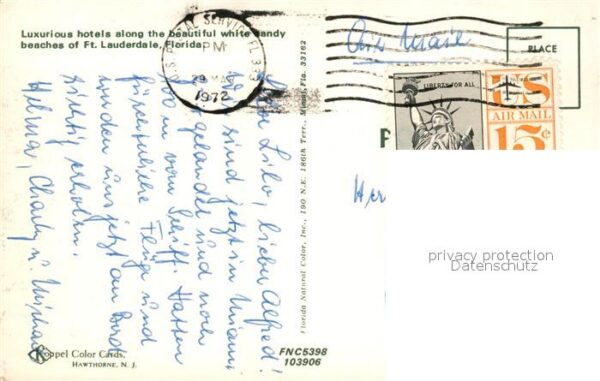 Luxurious hotels along the beautiful white sandy
beaches of Ft. Lauderdale, Florida.
POSTAL SERVICE FL 333
PM
29 MAR
1972
Air Mail
PLACE
LIBERTY FOR ALL
US
AIR MAIL
15¢
Liebe Lilo, lieber Alfred!
sind jetzt in Miami
gelandet und noch
von Schiff. Hatten
Flüge und
uns jetzt an Bord
richtig erholen.
Helma, Charly u.
Her
Florida Natural Color, Inc., 190 N.E. 186th Terr., Miami, Fla. 33162
privacy protection
Datenschutz
Koppel Color Cards,
HAWTHORNE, N. J.
FNC5398
103906